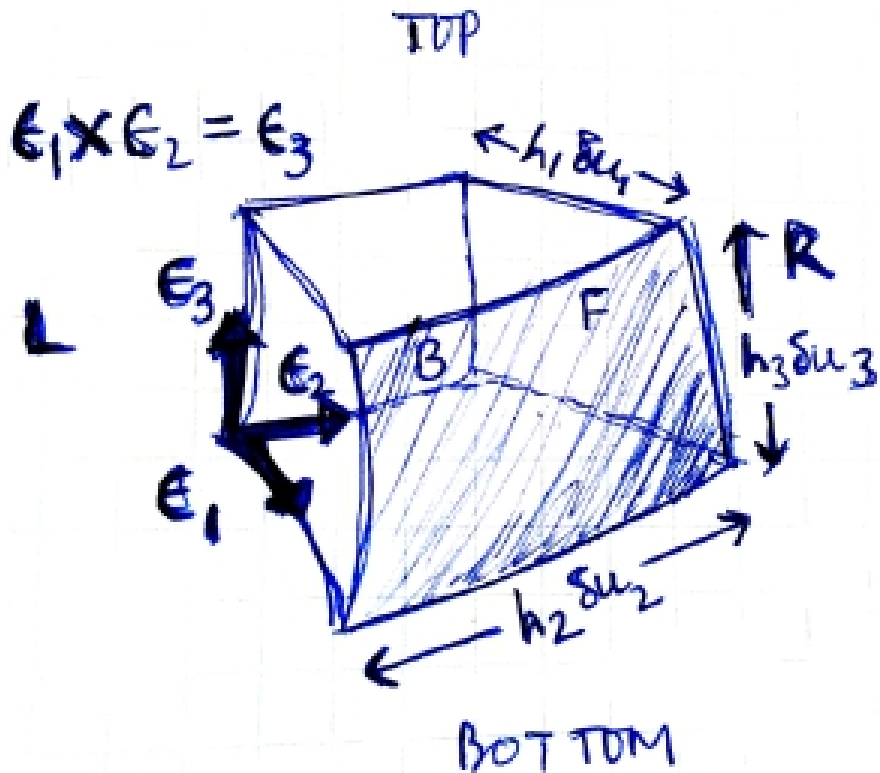 TOP
ϵ₁×ϵ₂=ϵ₃
h₁δu₁
R
ϵ₃
L
F
B
h₃δu₃
ϵ₂
ϵ₁
h₂δu₂
BOTTOM